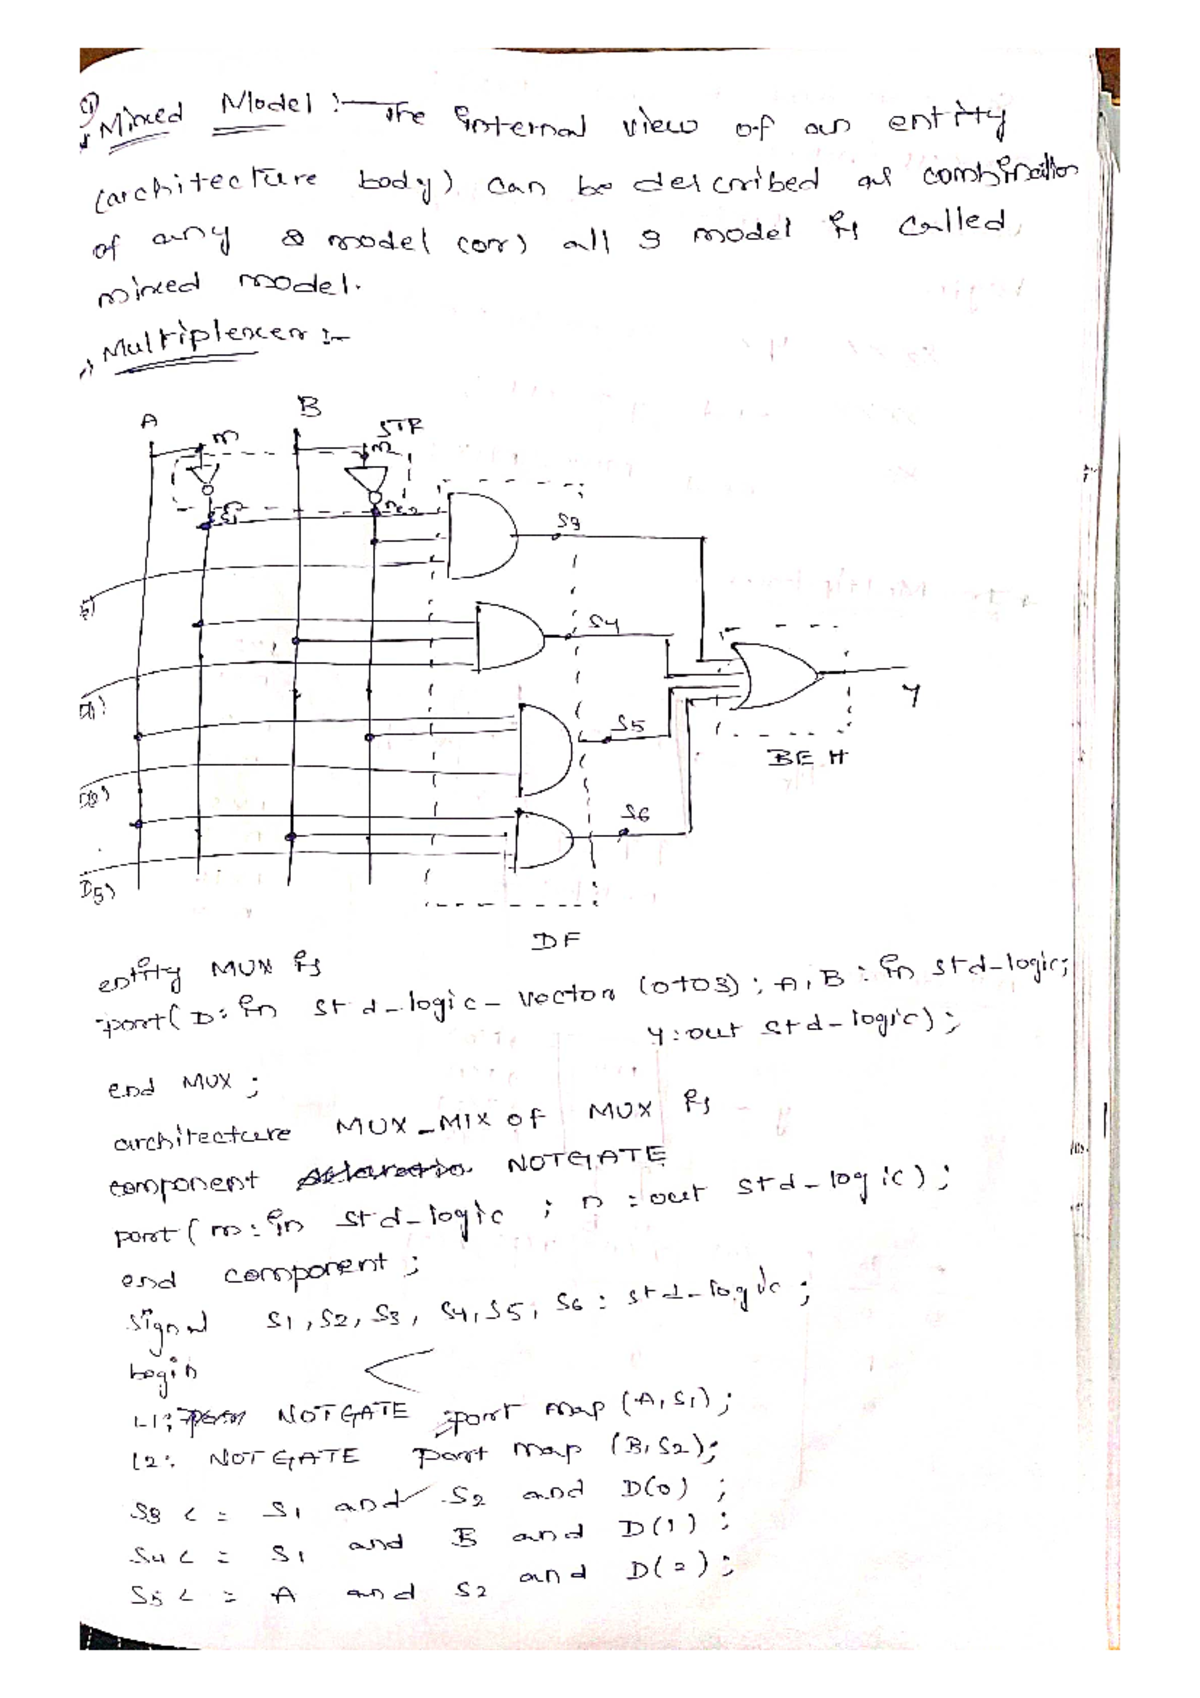 Mixed Model :- The internal view of an entity
(architecture body) can be described as combination
of any 2 model (or) all 3 model is called
mixed model.
Multiplexer :-
A
B
STR
m
m
S3
S4
Y
S5
BEH
S6
D3)
DF
entity MUX is
port( D: in std-logic-vector (0 to 3); A, B : in std-logic;
Y: out std-logic);
end MUX ;
architecture MUX_MIX of MUX is
component NOTGATE
port ( m: in std-logic ; n : out std-logic) ;
end component ;
signal S1, S2, S3, S4, S5, S6 : std-logic ;
begin
L1: NOTGATE port map (A, S1) ;
L2: NOTGATE port map (B, S2);
S3 <= S1 and S2 and D(0) ;
S4 <= S1 and B and D(1) ;
S5 <= A and S2 and D(2) ;